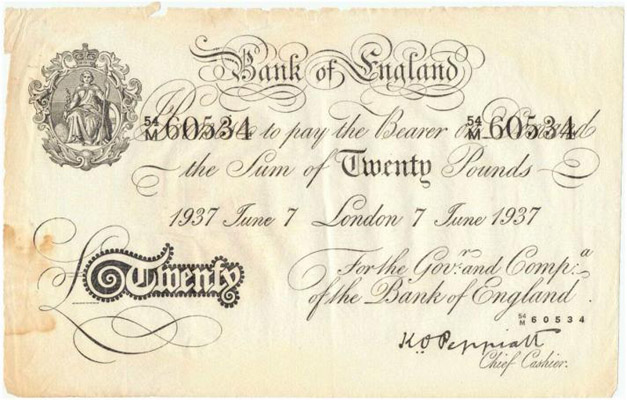 Bank of England
54/M 60534 to pay the Bearer on Demand 54/M 60534
the Sum of Twenty Pounds
1937 June 7 London 7 June 1937
For the Govr. and Compa.
of the Bank of England.
£Twenty
54/M 60534
K.O. Peppiatt
Chief Cashier.